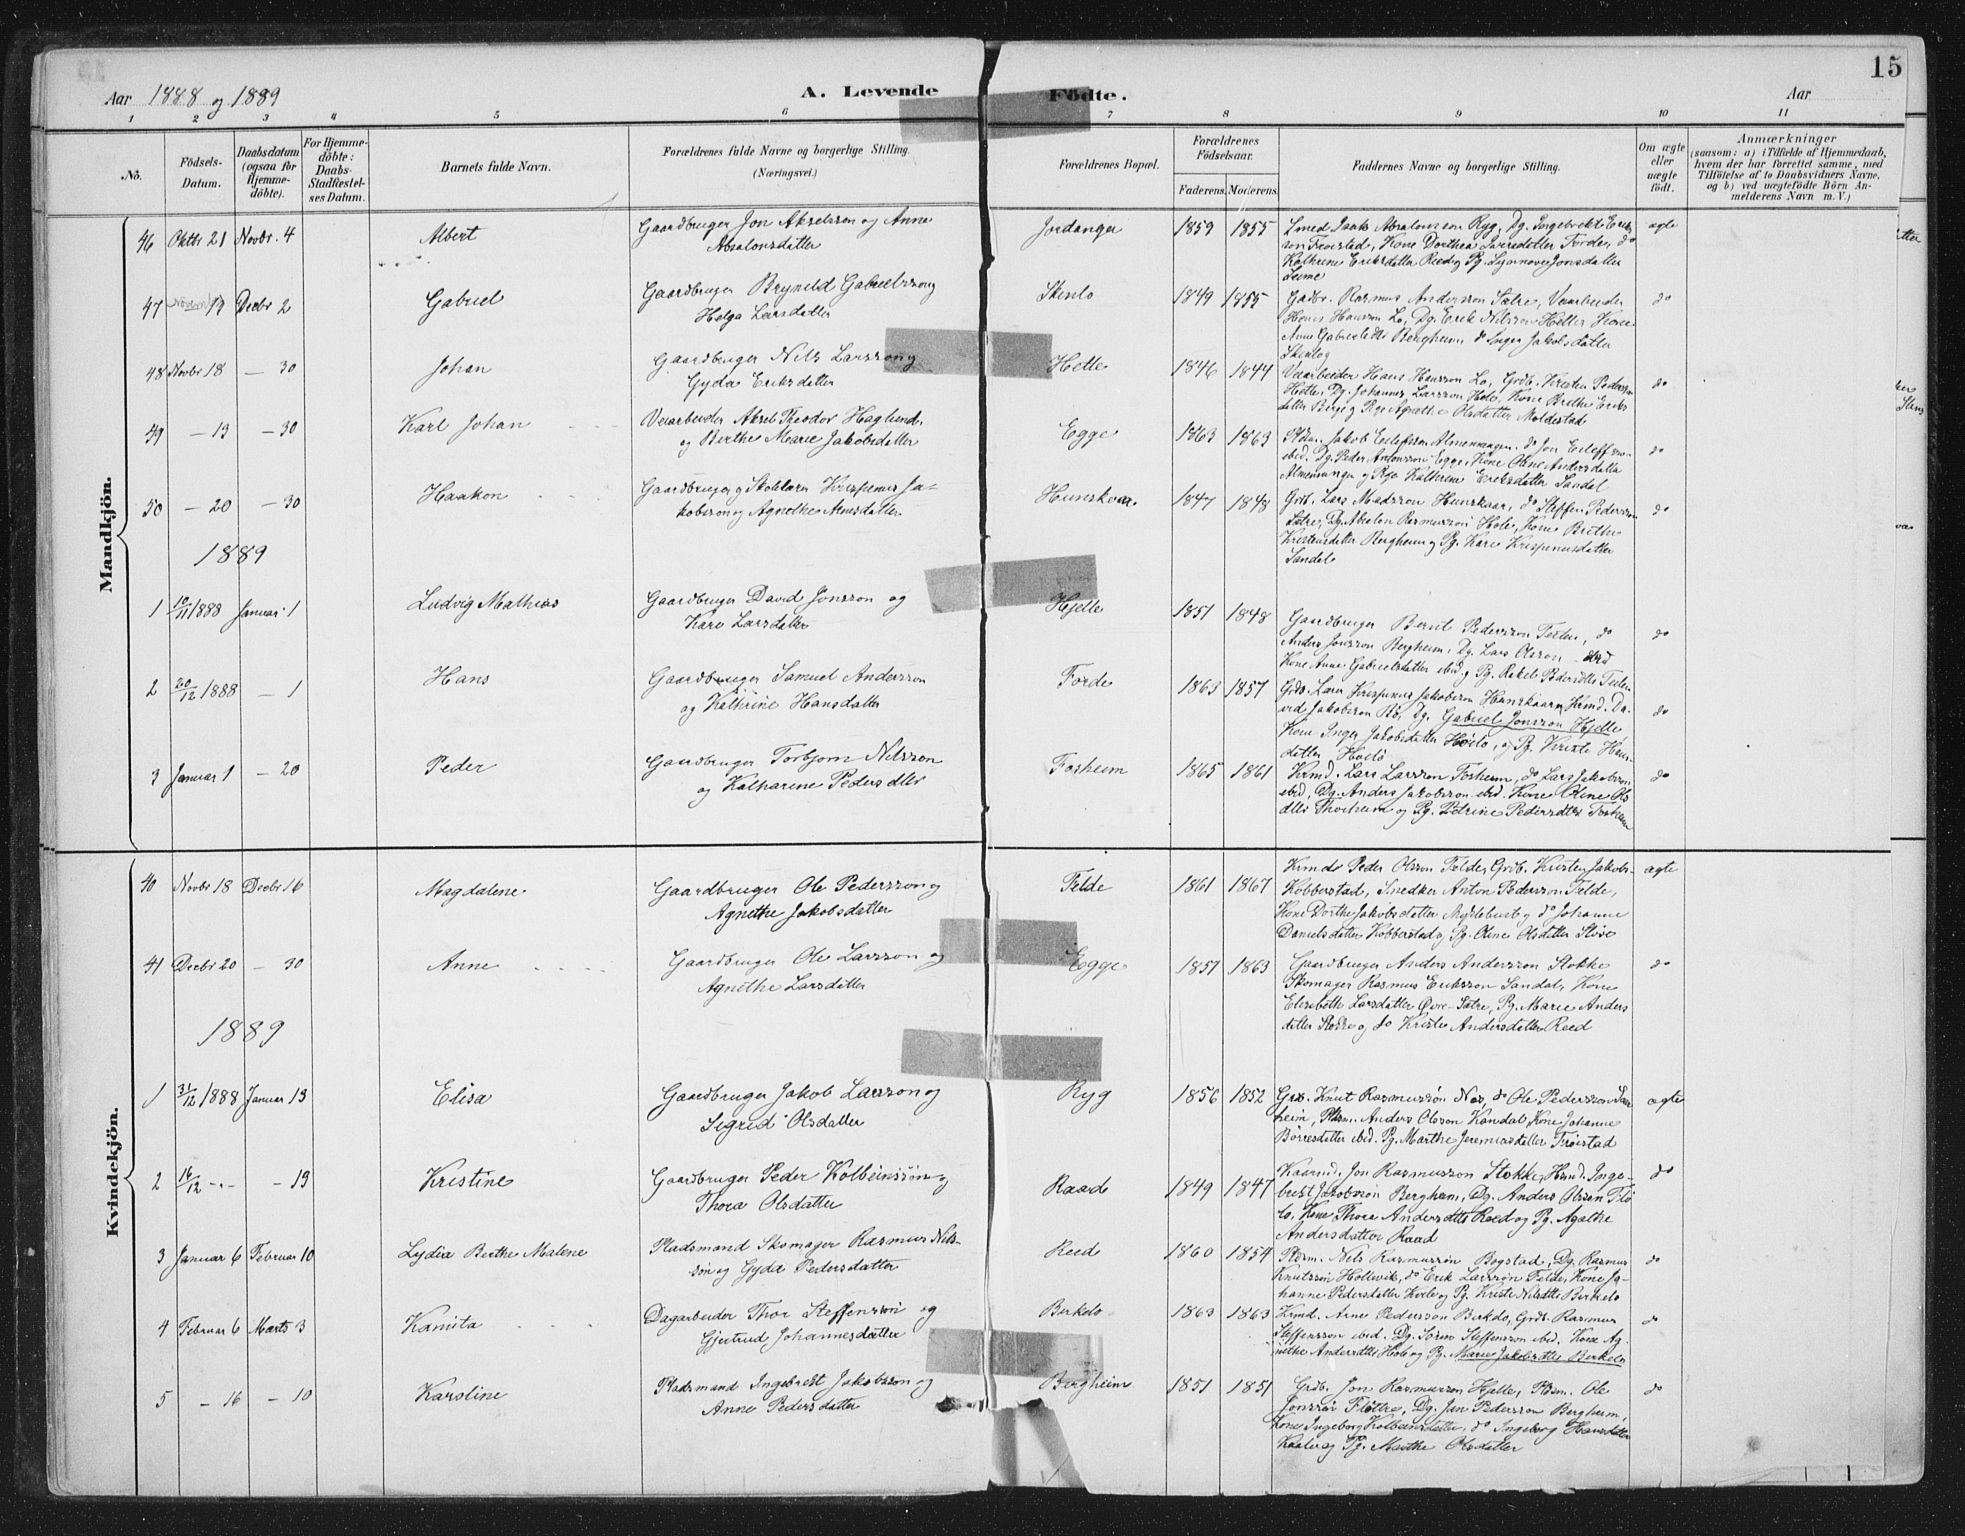 15
Aar 1888 og 1889 A. Levende Födte. Aar
1 2 3 4 5 6 7 8 9 10 11
No. Födsels-Datum. Daabsdatum (ogsaa for Hjemmedöbte). For Hjemmedöbte: Daabs-Stadfæstelses Datum. Barnets fulde Navn. Forældrenes fulde Navne og borgerlige Stilling. (Næringsvei.) Forældrenes Bopæl. Forældrenes Födselsaar. Faderens. Moderens. Faddernes Navne og borgerlige Stilling. Om ægte eller uægte födt. Anmærkninger
(saasom: a) i Tilfælde af Hjemmedaab, hvem der har forrettet samme, med Tilföielse af to Daabsvidners Navne, og b) ved uægtefödte Börn Anmelderens Navn m. V.)
Mandkjön.
46 Oktbr 21 Novbr. 4 Albert Gaardbruger Jon Akselsson og Anne
Absalonsdatter Jordanger 1859 1855 Smed Isak Absalonsson Ryg, Dg. Ingebrekt Erik-
son Troistad, Kone Dorthea Larsdatter Forde, do
Kathrine Eriksdatter Reed og Pg. Synnove Jonsdatter
Seime ægte
47 19 Decbr 2 Gabriel Gaardbruger Bryneld Gabrielsson og
Helga Larsdatter Skinlo 1849 1855 Gadbr. Rasmus Andersson Sætre, Vaarbeider
Hans Hansson Lo, Dg. Erik Nilsson Hetle Kone
Anne Gabrielsdtr Bergheim, do Inger Jakobsdatter
Skinlo do
48 Novbr 18 — 30 Johan Gaardbruger Nils Larsson og
Gyda Eriksdatter Hetle 1846 1844 Veiarbeider Hans Hansson Lo, Grdb. Kristen Pedersson
Hetle, Dg. Johannes Larsson Hole, Kone Brithe Eriks
datter Berge og Pige Agnethe Olsdatter Moldestad do
49 — 13 — 30 Karl Johan Veiarbeider Aksel Theodor Haglund,
og Birthe Marie Jakobsdatter Egge 1863 1863 Jakob Eilefsson Almenningen, do Jon Eileffson
ibid. Dg. Peder Antonsson Egge, Kone Oline Andersdatter
Almenningen og Pige Kathrine Eriksdatter Sandal do
50 — 20 — 30 Haakon Gaardbruger og Skolelærer Krispenus Ja-
kobsson og Agnethe Hunskaar 1847 1848 Grdb. Lars Madsson Hunskaar, do Steffen Pedersson
Sætre, Dg. Absalon Rasmusson Hole, Kone Brithe
Kristensdatter Bergheim og Pg. Kari Krispenusdatter
Sandal do
1889
1 10/11 1888 Januar 1 Ludvig Mathias Gaardbruger David Jonsson og
Kari Larsdatter Hjelle 1851 1848 Gaardbruger Bernt Pedersson Teiten, do
Anders Jonsson Bergheim, Dg. Lars Olsson ibid
Kone Anne Gabrielsdatter ibid, og Pg. Rakel Pedersdtr Teiten do
2 20/12 1888 — 1 Hans Gaardbruger Samuel Andersson
og Kathrine Hansdatter Forde 1863 1857 Grdb. Lærer Krispenus Jakobsson Hunskaar, Krmd. Da-
vid Jakobsson Bö, Dg. Gabriel Jonsson Hjelle
Kone Inger Jakobsdatter Höilo, og Pg. Kriste Hans-
datter Höilo do
3 Januar 1 — 20 Peder Gaardbruger Torbjorn Nilsson
og Katharine Pedersdtr Forheim 1865 1861 Krmd. Lars Larsson Forheim, do Lars Jakobsson
ibid, Dg. Anders Jakobsson ibid. Kone Oline Ols
dtr Thorheim og Pg. Petrine Pedersdtr Forheim do
Kvindekjön.
40 Novbr 18 Decbr 16 Magdalene Gaardbruger Ole Pedersson og
Agnethe Jakobsdatter Felde 1861 1867 Krmd. Peder Olsson Felde, Grdb. Kristen Jakobs-
Kobberstad, Snedker Anton Pedersson Felde,
Kone Dorthe Jakobsdatter Myklebust og do Johanne
Danielsdatter Kobberstad og Pg. Oline Olsdatter Stöve ægte
41 Decbr 20 — 30 Anne Gaardbruger Ole Larsson og
Agnethe Larsdatter Egge 1857 1863 Gaardbruger Anders Andersson Stokke
Skomager Rasmus Eriksson Sandal, Kone
Elisabeth Larsdatter Övre-Sætre, Pg. Marie Anders
datter og do Kriste Andersdatter Reed do
1889
1 31/12 1888 Januar 13 Elisa Gaardbruger Jakob Larsson og
Sigrid Olsdatter Ryg 1856 1852 Grdb. Knut Rasmusson Nos, do Ole Pedersson Sær
heim, Pldsm. Anders Olsson Kandal, Kone Johanne
Börresdatter ibid. Pg. Marthe Jeremiasdatter Tröistad ægte
2 16/12 -"- — 13 Kristine Gaardbruger Peder Kolbeinsson og
Thora Olsdatter Raad 1849 1847 Kaarmd. Jon Rasmusson Stokke, Husmd. Inge-
brekt Jakobsson Bergheim, Dg. Anders Olssen Flö
lo, Kone Thora Andersdtr Reed og Pg. Agathe
Andersdatter Raad do
3 Januar 6 Februar 10 Lydia Berthe Malene Pladsmand Skomager Rasmus Nils-
son og Gyda Pedersdatter Reed 1860 1854 Pldsm. Nils Rasmusson Bogstad, Dg. Rasmus
Knutsson Hollevik, do Erik Larsson Felde, Kone Jo-
hanne Pedersdatter Hole og Pg. Kriste Nilsdtr Birkelo do
4 Februar 6 Marts 3 Kamita Dagarbeider Thor Steffensson og
Gjertrud Johannesdatter Birkelo 1863 1863 Krmd. Arne Pedersson Birkelo, Grdb. Rasmus
Steffensson ibid. Dg. Sören Steffensson ibid. Kone Ag-
nethe Andersdtr Hole og Pg. Marie Jakobsdtr Birkelo do
5 — 16 — 10 Karstine Pladsmand Ingebrekt Jakobsson og
Anne Pedersdatter Bergheim 1851 1851 Grdb. Jon Rasmusson Hjelle, Pldsm. Ole
Jonsson Flöttre, Dg. Jon Pedersson Bergheim,
Kone Ingeborg Kolbeinsdatter, do Ingeborg Hansdatter
og Pg. Marthe Olsdatter do